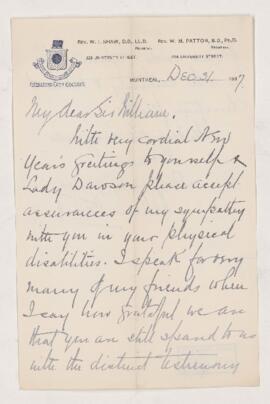 REV. W. I. SHAW, D.D., LL.D. REV. W. M. PATTON, B.D., PH.D.
PRINCIPAL.
228 UNIVERSITY STREET. UNIVERSITY STREET.
MONTREAL, Dec 31 1897.
My dear Sir William,
With very cordial New
Year's greetings to yourself &
Lady Dawson please accept
assurances of my sympathy
with you in your physical
disabilities. I speak for very
many of my friends when
I say how grateful we are
that you are still spared to us
with the distinct testimony